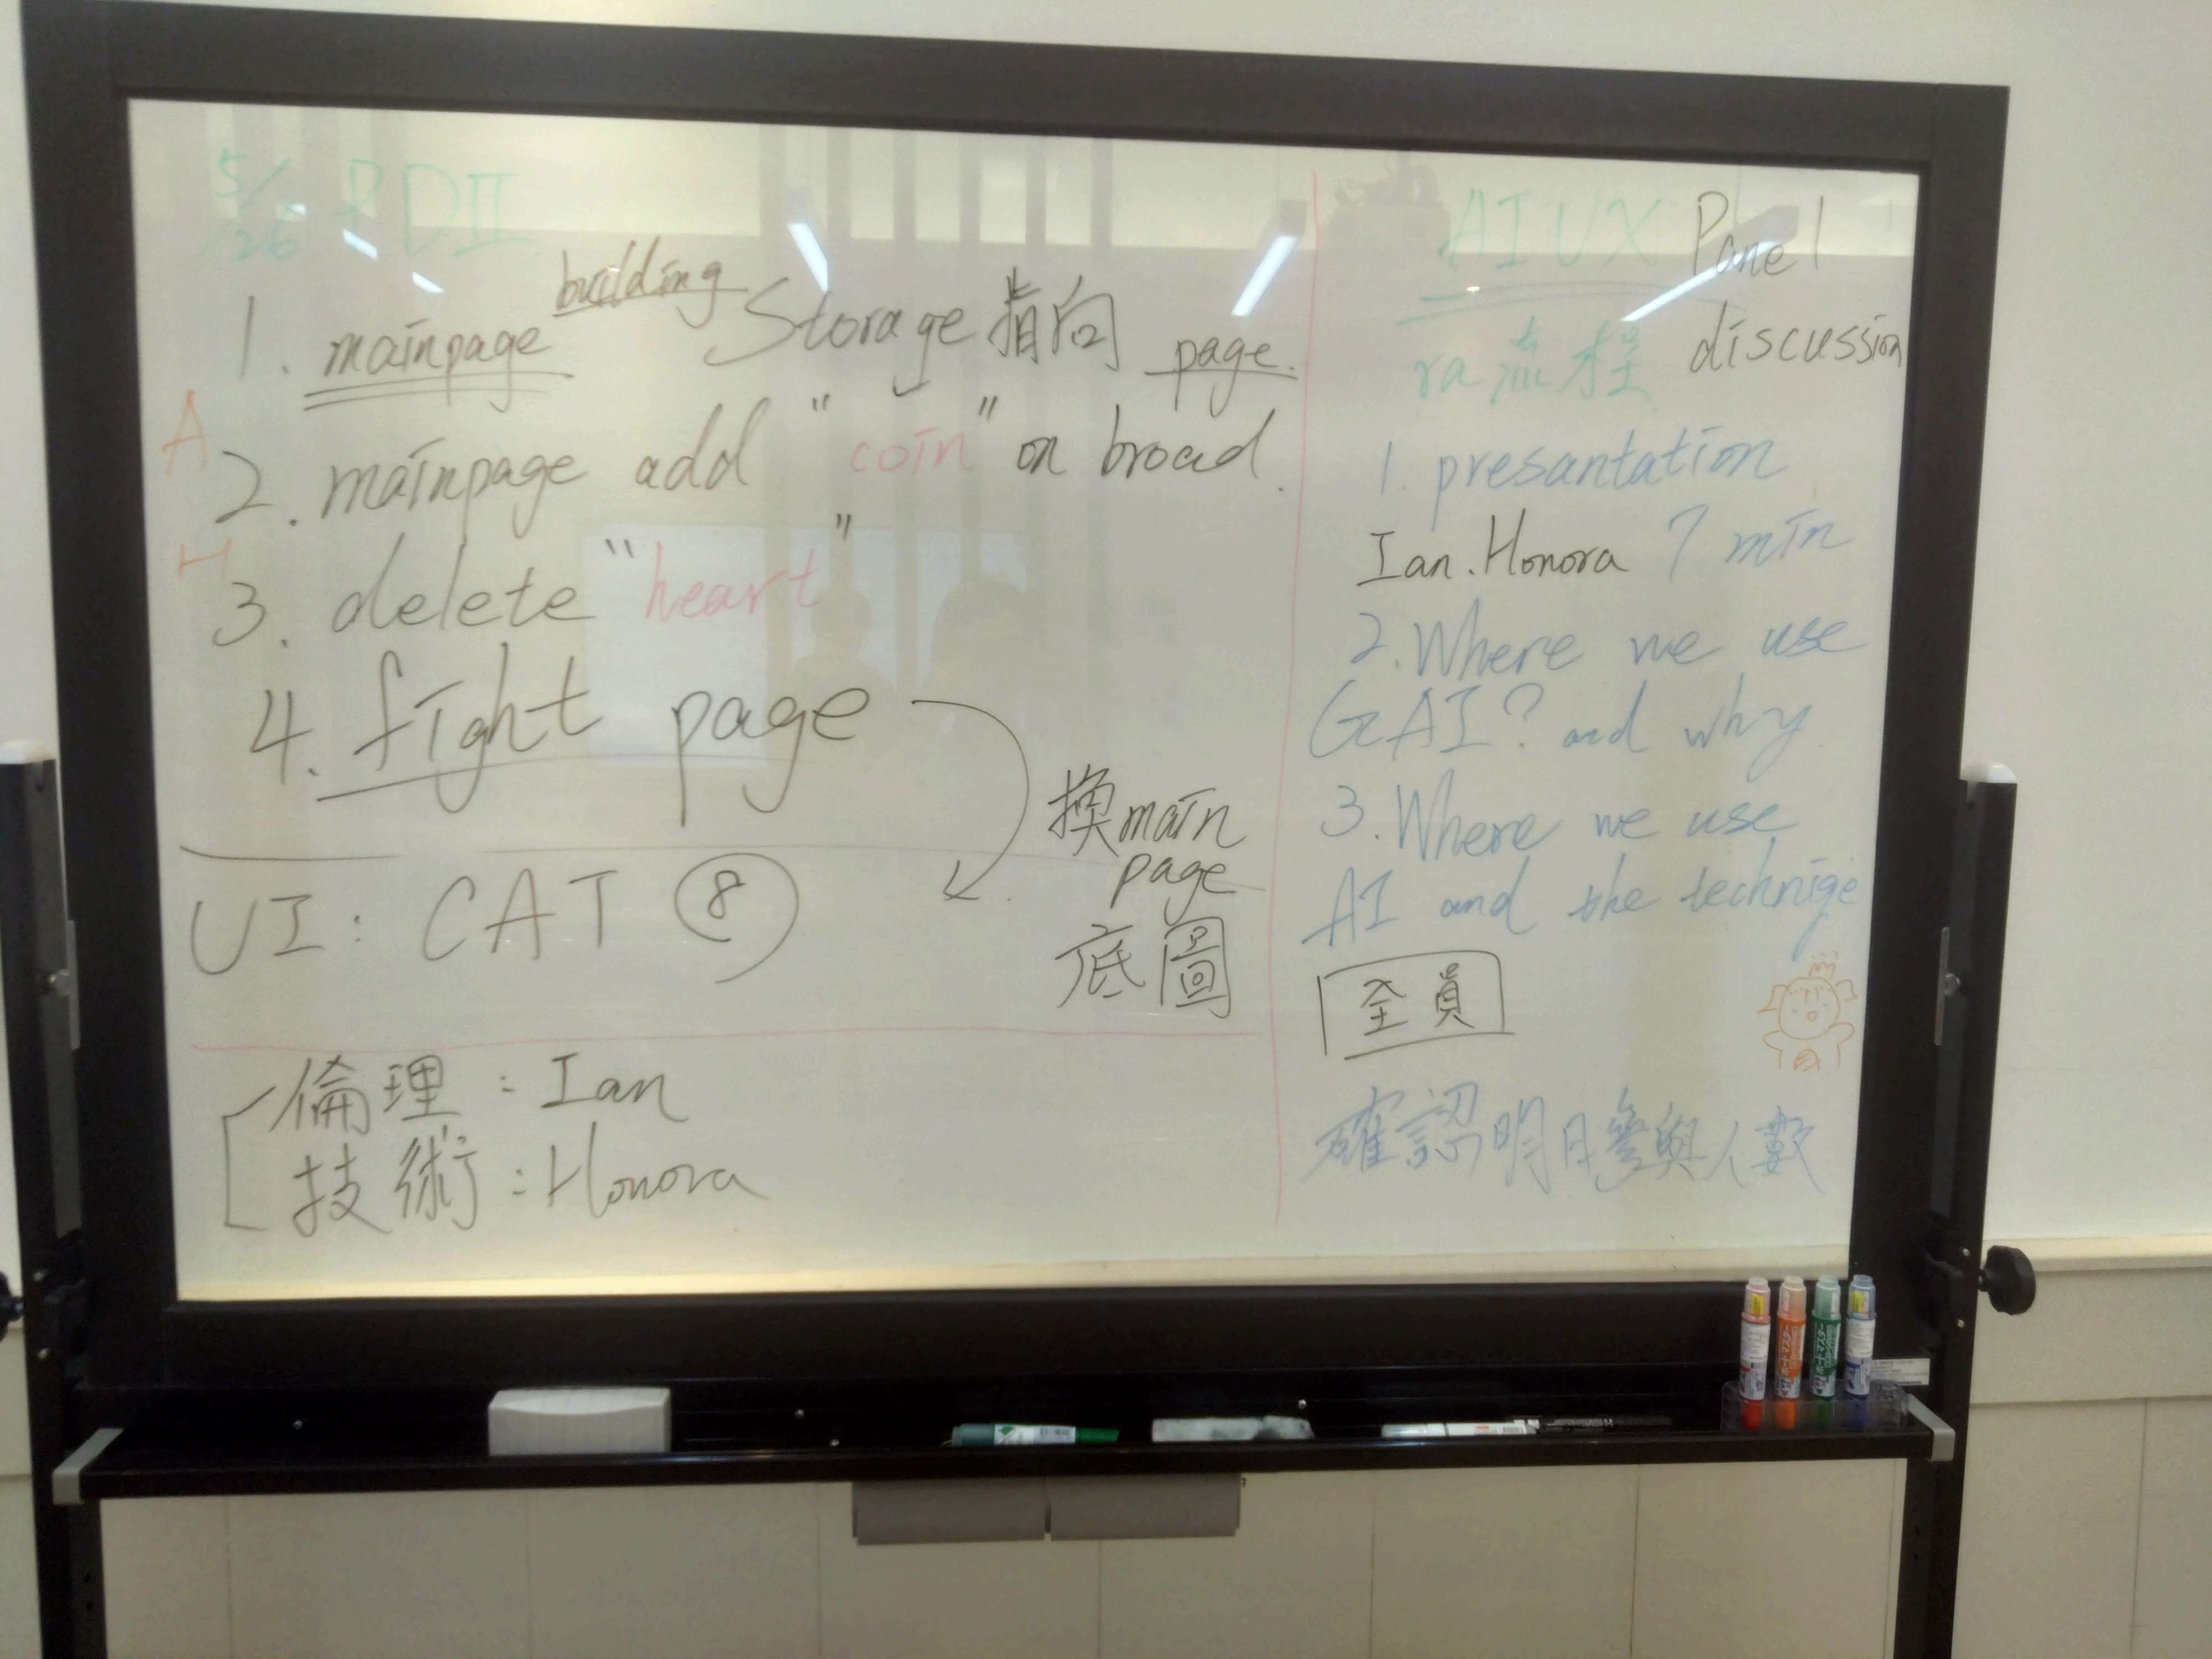 5/26 PDII
1. mainpage building Storage 指向 page.
A
2. mainpage add "coin" on broad.
H
3. delete "heart"
4. fight page
換 main
page
底圖
UI: CAT ⑧
倫理: Ian
技術: Honora
AI UX Panel
discussion
ra 流程
1. presantation
Ian. Honora 7 min
2. Where we use
GAI? and why
3. Where we use
AI and the technige
全員
確認明日參與人數